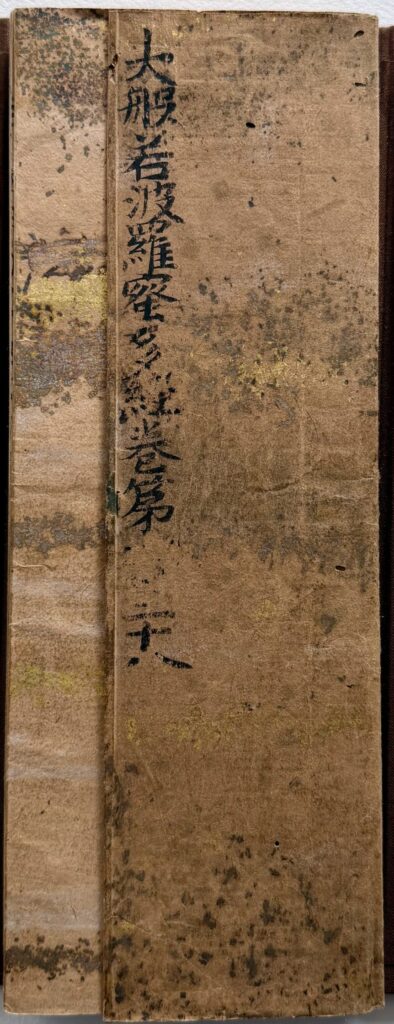 大般若波羅蜜多經卷第二十八